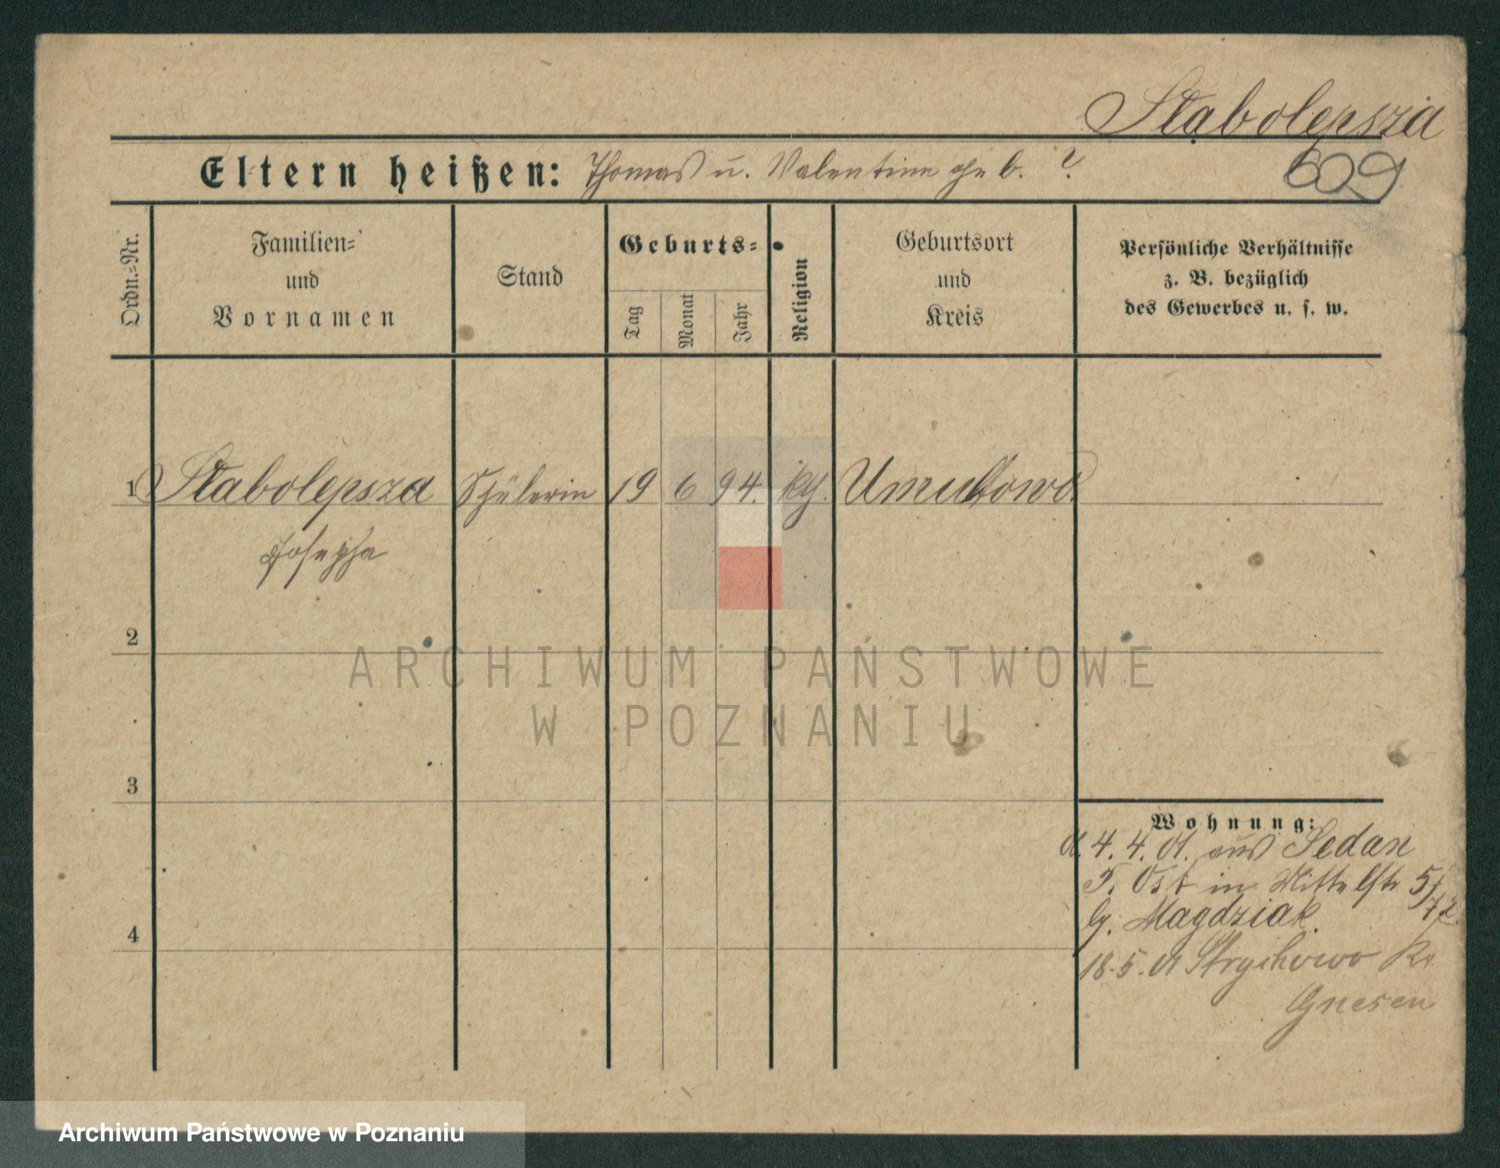 Stabolepsza
609
Eltern heißen: Thomas u. Valentine geb. ?
Ordn.-Nr.
Familien-
und
Vornamen
Stand
Geburts-
Tag
Monat
Jahr
Religion
Geburtsort
und
Kreis
Persönliche Verhältnisse
z. B. bezüglich
des Gewerbes u. s. w.
1 Stabolepsza Schülerin 19 6 94. kth.
Josepha
2
3
4
Wohnung:
4. 4. 01. aus Sedan
P. Ost in Mittelstr 5/
72
b/. Magdziak.
18. 5. 01 Strychowo Kr
Gnesen
ARCHIWUM PAŃSTWOWE
W POZNANIU
Archiwum Państwowe w Poznaniu